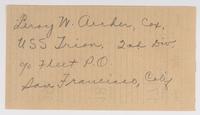 Leroy W. Archer, Cox,
USS Trion, 2nd Div
c/o Fleet P.O.
San Francisco, Calif